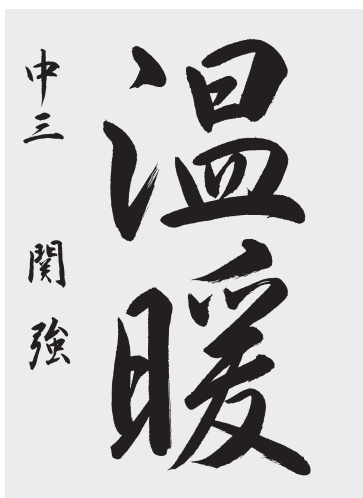 温暖
中三 関強